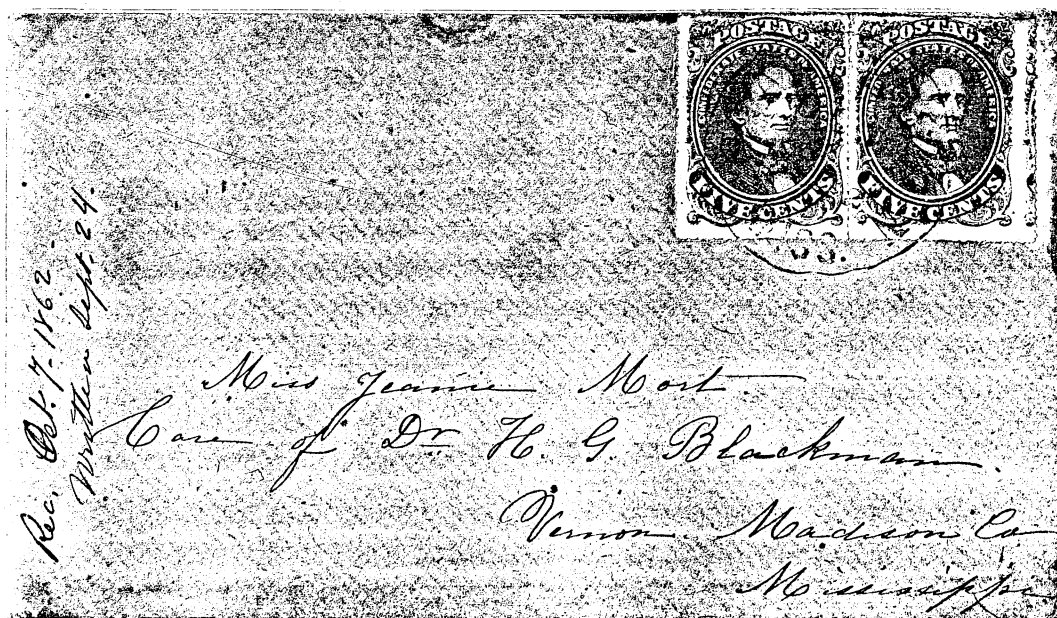 POSTAGE
CONFEDERATE STATES OF AMERICA
FIVE CENTS
POSTAGE
CONFEDERATE STATES OF AMERICA
FIVE CENTS
Rec. Oct. 7. 1862.
Written Sept. 24.
Miss Jeanie Mort
Care of Dr H. G. Blackman.
Vernon. Madison Co
Mississippi